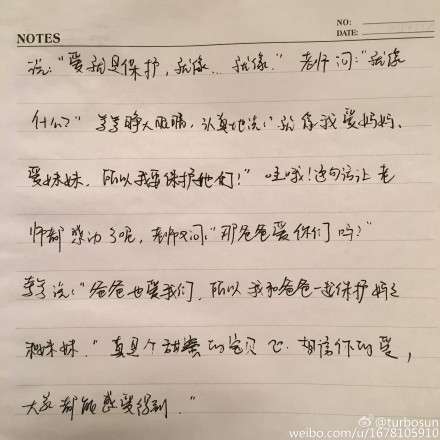 NOTES
NO:
DATE:
说:"爱就是保护,就像…就像."老师问:"就像
什么?"李李睁大眼睛,认真地说:"就像我爱妈妈、
爱妹妹,所以我要保护她们!"哇哦!这句话让老
师都感动了呢,老师又问:"那爸爸爱你们吗?"
李李说:"爸爸也爱我们,所以我和爸爸一起保护妈妈
和妹妹."真是个甜蜜的宝贝 相信你的爱,
大家都能感受得到."
@turbosun
weibo.com/u/1678105910